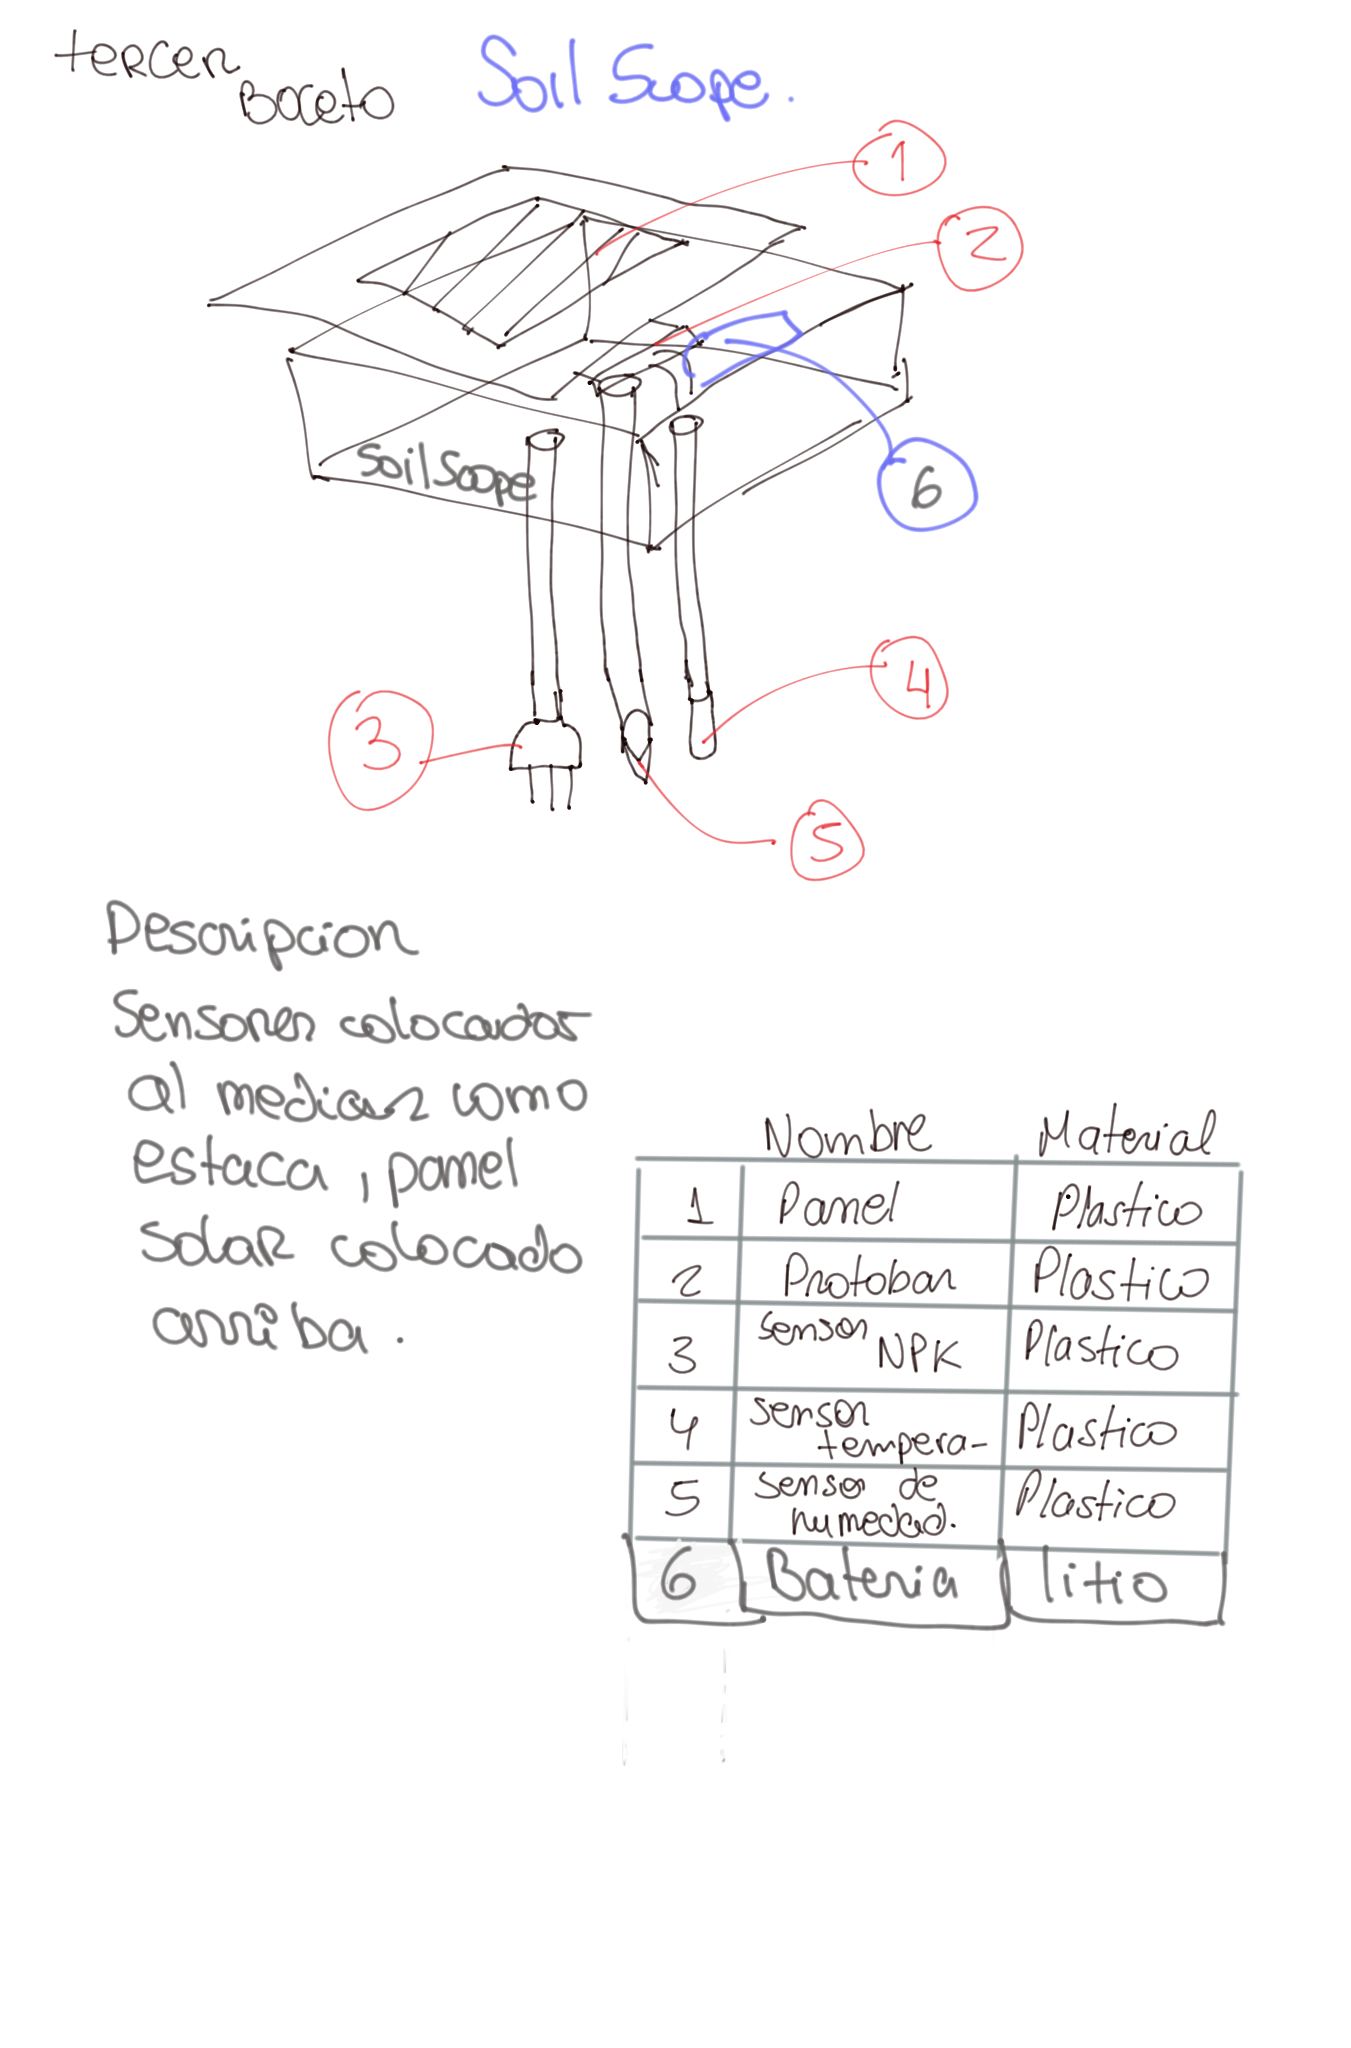 tercer
Boceto
Soil Scope.
1
2
SoilScope
6
4
3
5
Descripcion
Sensores colocados
al median como
estaca, panel
solar colocado
arriba.
Nombre Material
1 Panel Plastico
2 Protobar Plastico
3 sensor NPK Plastico
4 sensor tempera- Plastico
5 sensor de humedad. Plastico
6 Bateria litio